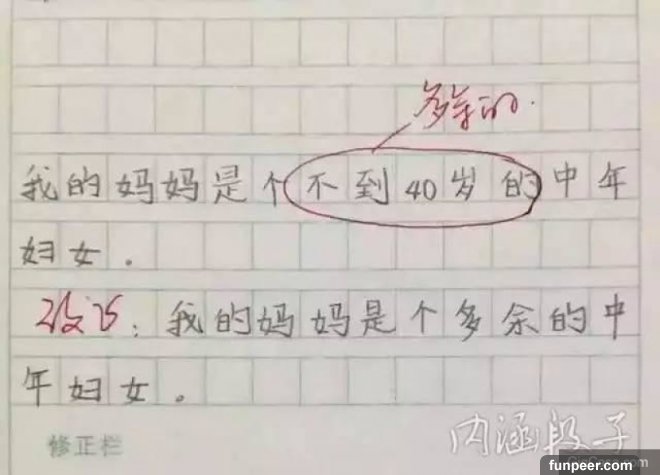 多余的.
我的妈妈是个不到40岁的中年
妇女.
改正:我的妈妈是个多余的中
年妇女。
修正栏
内涵段子
funpeer.com